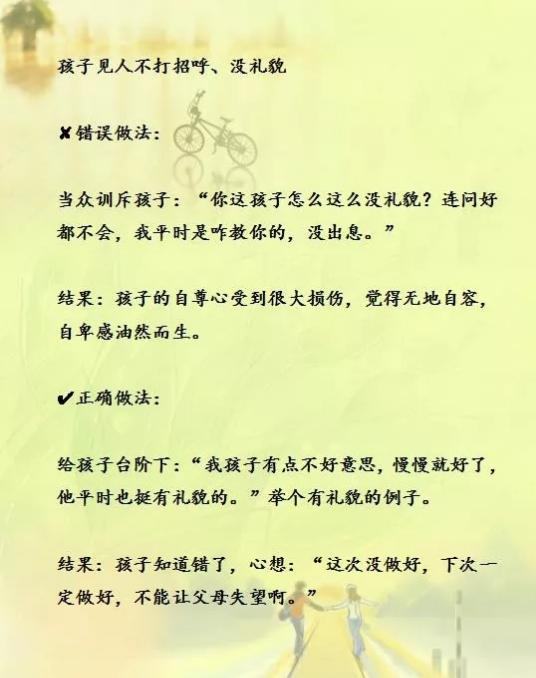 孩子见人不打招呼、没礼貌
✘错误做法：
当众训斥孩子：“你这孩子怎么这么没礼貌？连问好
都不会，我平时是咋教你的，没出息。”
结果：孩子的自尊心受到很大损伤，觉得无地自容，
自卑感油然而生。
✔正确做法：
给孩子台阶下：“我孩子有点不好意思，慢慢就好了，
他平时也挺有礼貌的。”举个有礼貌的例子。
结果：孩子知道错了，心想：“这次没做好，下次一
定做好，不能让父母失望啊。”